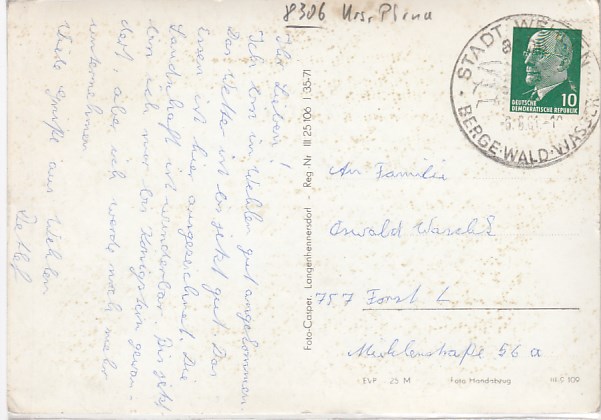 8306 Krs. Pirna
STADT WEHLEN
BERGE·WALD·WASSER
DEUTSCHE
DEMOKRATISCHE REPUBLIK
10
Ihr Lieben!
Ich bin in Wehlen gut angekommen.
Das Wetter ist bis jetzt gut. Das
Essen ist hier ausgezeichnet. Die
Landschaft ist wunderbar. Bis jetzt
bin ich nur bis Königstein gewan-
dert, aber ich werde noch mehr
unternehmen.
Viele Grüße aus Wehlen
Detlef
Foto-Casper, Langenhennersdorf Reg. Nr. III 25 106 I 35-71
An Familie
Oswald
757 Forst L
Muhlenstraße 56 a
EVP -25 M Foto Handabzug III-9 109